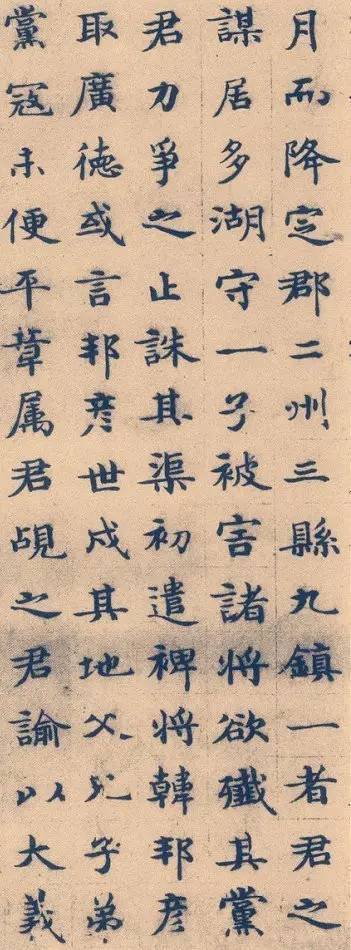 月而降定郡二州三縣九鎮一者君之
謀居多湖守一子被害諸將欲殲其黨
君力爭之止誅其渠初遣裨將韓邦彦
取廣德或言邦彦世戍其地父兄子弟
黨冦未便平章属君覘之君諭以大義